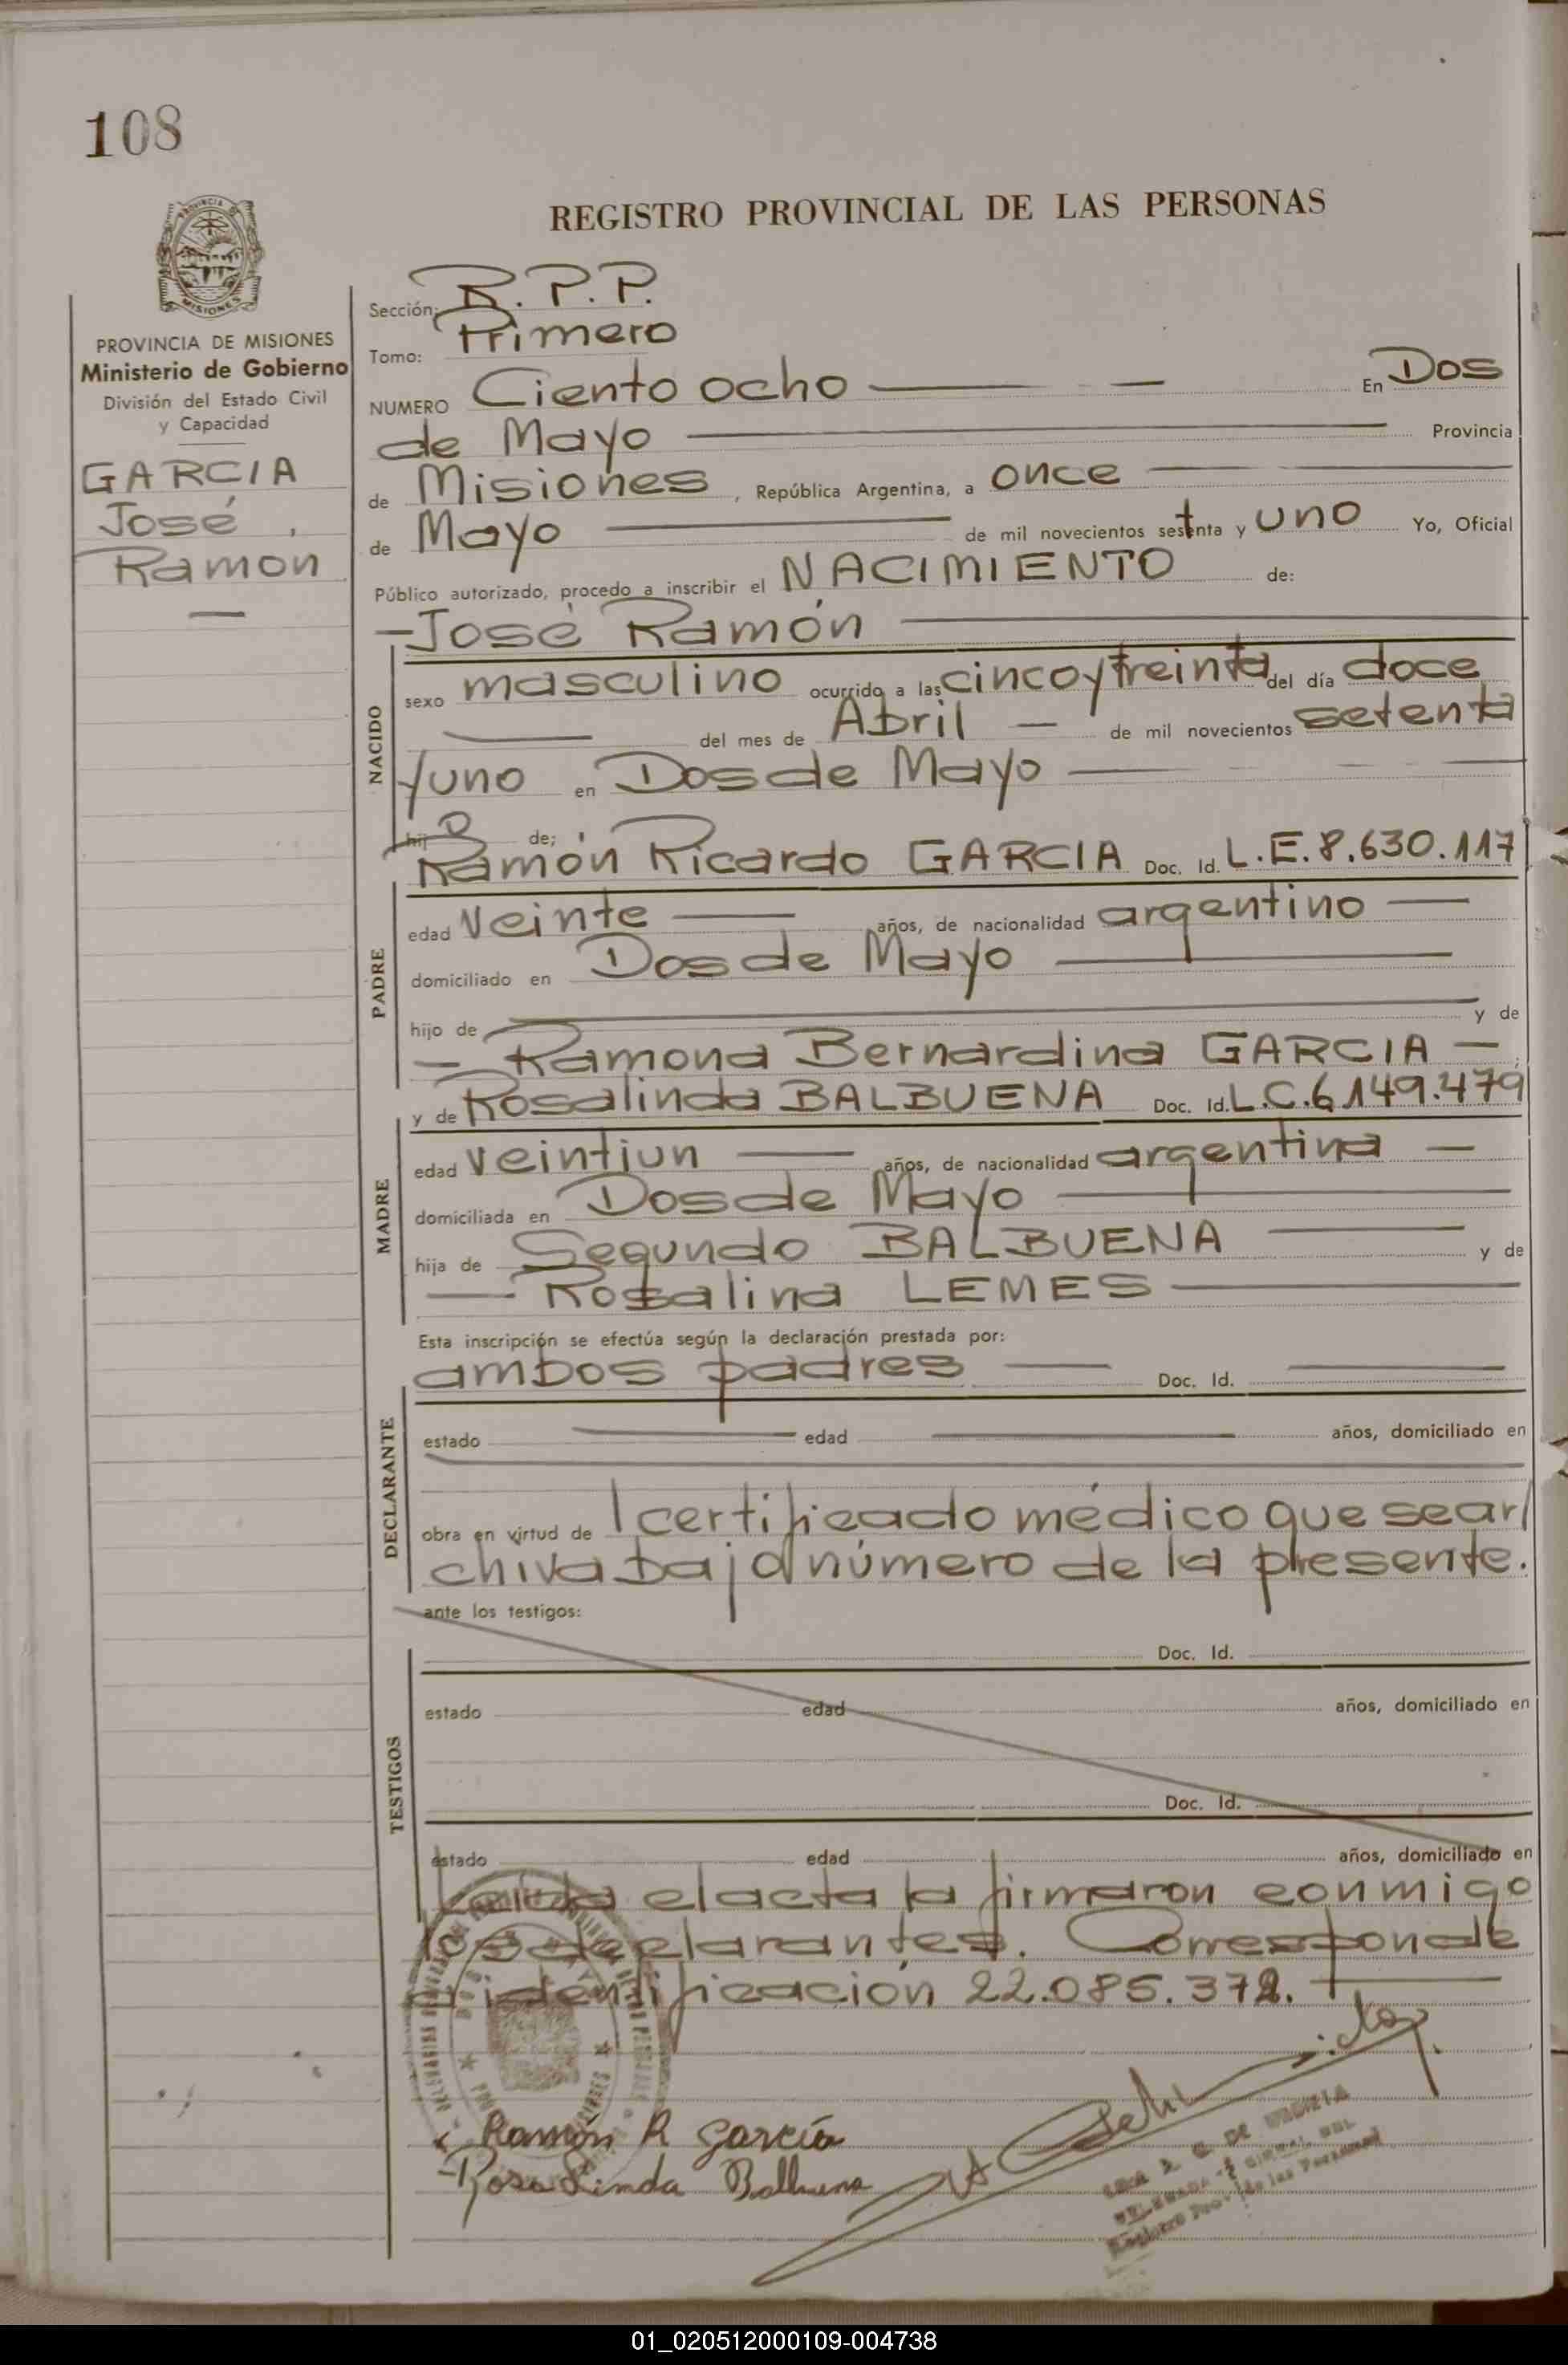 108
REGISTRO PROVINCIAL DE LAS PERSONAS
PROVINCIA DE MISIONES
Ministerio de Gobierno
División del Estado Civil
y Capacidad
GARCIA
José
Ramon
Sección: R.P.P.
Tomo: Primero
NUMERO Ciento ocho En Dos
de Mayo Provincia
de Misiones, República Argentina, a once
de Mayo de mil novecientos setenta y uno Yo, Oficial
Público autorizado, procedo a inscribir el NACIMIENTO de:
José Ramón
NACIDO
sexo masculino ocurrido a las cinco y treinta del día doce
del mes de Abril de mil novecientos setenta
y uno en Dos de Mayo
hijo de;
Ramón Ricardo GARCIA Doc. Id. L.E. 8.630.117
PADRE
edad veinte años, de nacionalidad argentino
domiciliado en Dos de Mayo
hijo de y de
Ramona Bernardina GARCIA
y de Rosalinda BALBUENA Doc. Id. L.C. 6.149.479
MADRE
edad veintiun años, de nacionalidad argentina
domiciliada en Dos de Mayo
hija de Segundo BALBUENA y de
Rosalina LEMES
Esta inscripción se efectúa según la declaración prestada por:
ambos padres Doc. Id.
DECLARANTE
estado edad años, domiciliado en
obra en virtud de l certificado médico que se ar/
chiva bajo número de la presente.
ante los testigos:
Doc. Id.
TESTIGOS
estado edad años, domiciliado en
Doc. Id.
estado edad años, domiciliado en
Leída el acta la firmaron conmigo
los declarantes. Corresponde
identificación 22.085.372.
Ramón R García
Rosa Linda Balbuena
Registro Prov. de las Personas
01_020512000109-004738